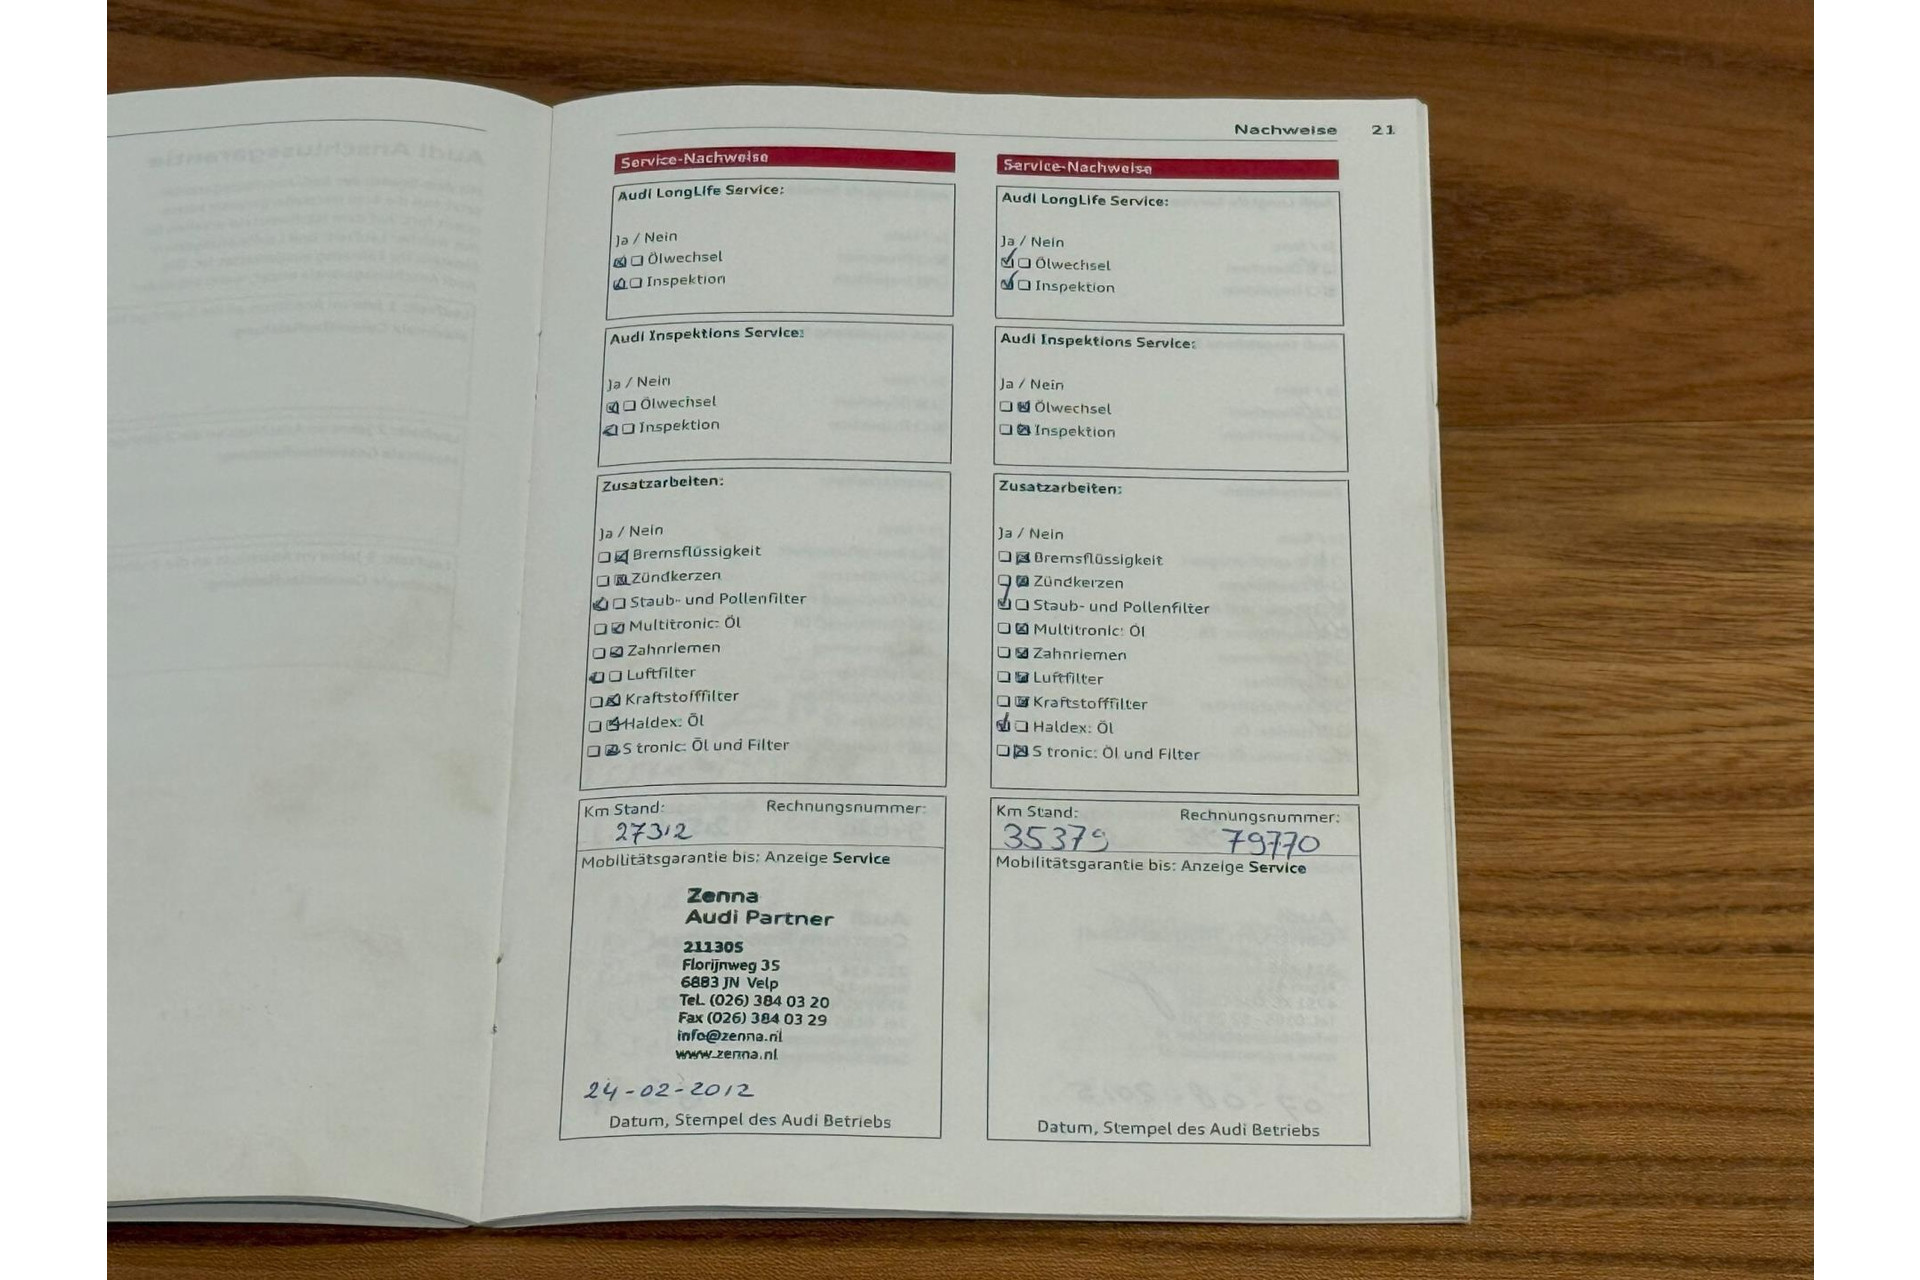 Nachweise 21
Service-Nachweise
Audi LongLife Service:
Ja / Nein
Ölwechsel
Inspektion
Audi Inspektions Service:
Ja / Nein
Ölwechsel
Inspektion
Zusatzarbeiten:
Ja / Nein
Bremsflüssigkeit
Zündkerzen
Staub- und Pollenfilter
Multitronic: Öl
Zahnriemen
Luftfilter
Kraftstofffilter
Haldex: Öl
S tronic: Öl und Filter
Km Stand: Rechnungsnummer:
27312
Mobilitätsgarantie bis: Anzeige Service
Zenna
Audi Partner
211305
Florijnweg 35
6883 JN Velp
Tel. (026) 384 03 20
Fax (026) 384 03 29
info@zenna.nl
www.zenna.nl
24-02-2012
Datum, Stempel des Audi Betriebs
Service-Nachweise
Audi LongLife Service:
Ja / Nein
Ölwechsel
Inspektion
Audi Inspektions Service:
Ja / Nein
Ölwechsel
Inspektion
Zusatzarbeiten:
Ja / Nein
Bremsflüssigkeit
Zündkerzen
Staub- und Pollenfilter
Multitronic: Öl
Zahnriemen
Luftfilter
Kraftstofffilter
Haldex: Öl
S tronic: Öl und Filter
Km Stand: Rechnungsnummer:
35379 79770
Mobilitätsgarantie bis: Anzeige Service
Datum, Stempel des Audi Betriebs